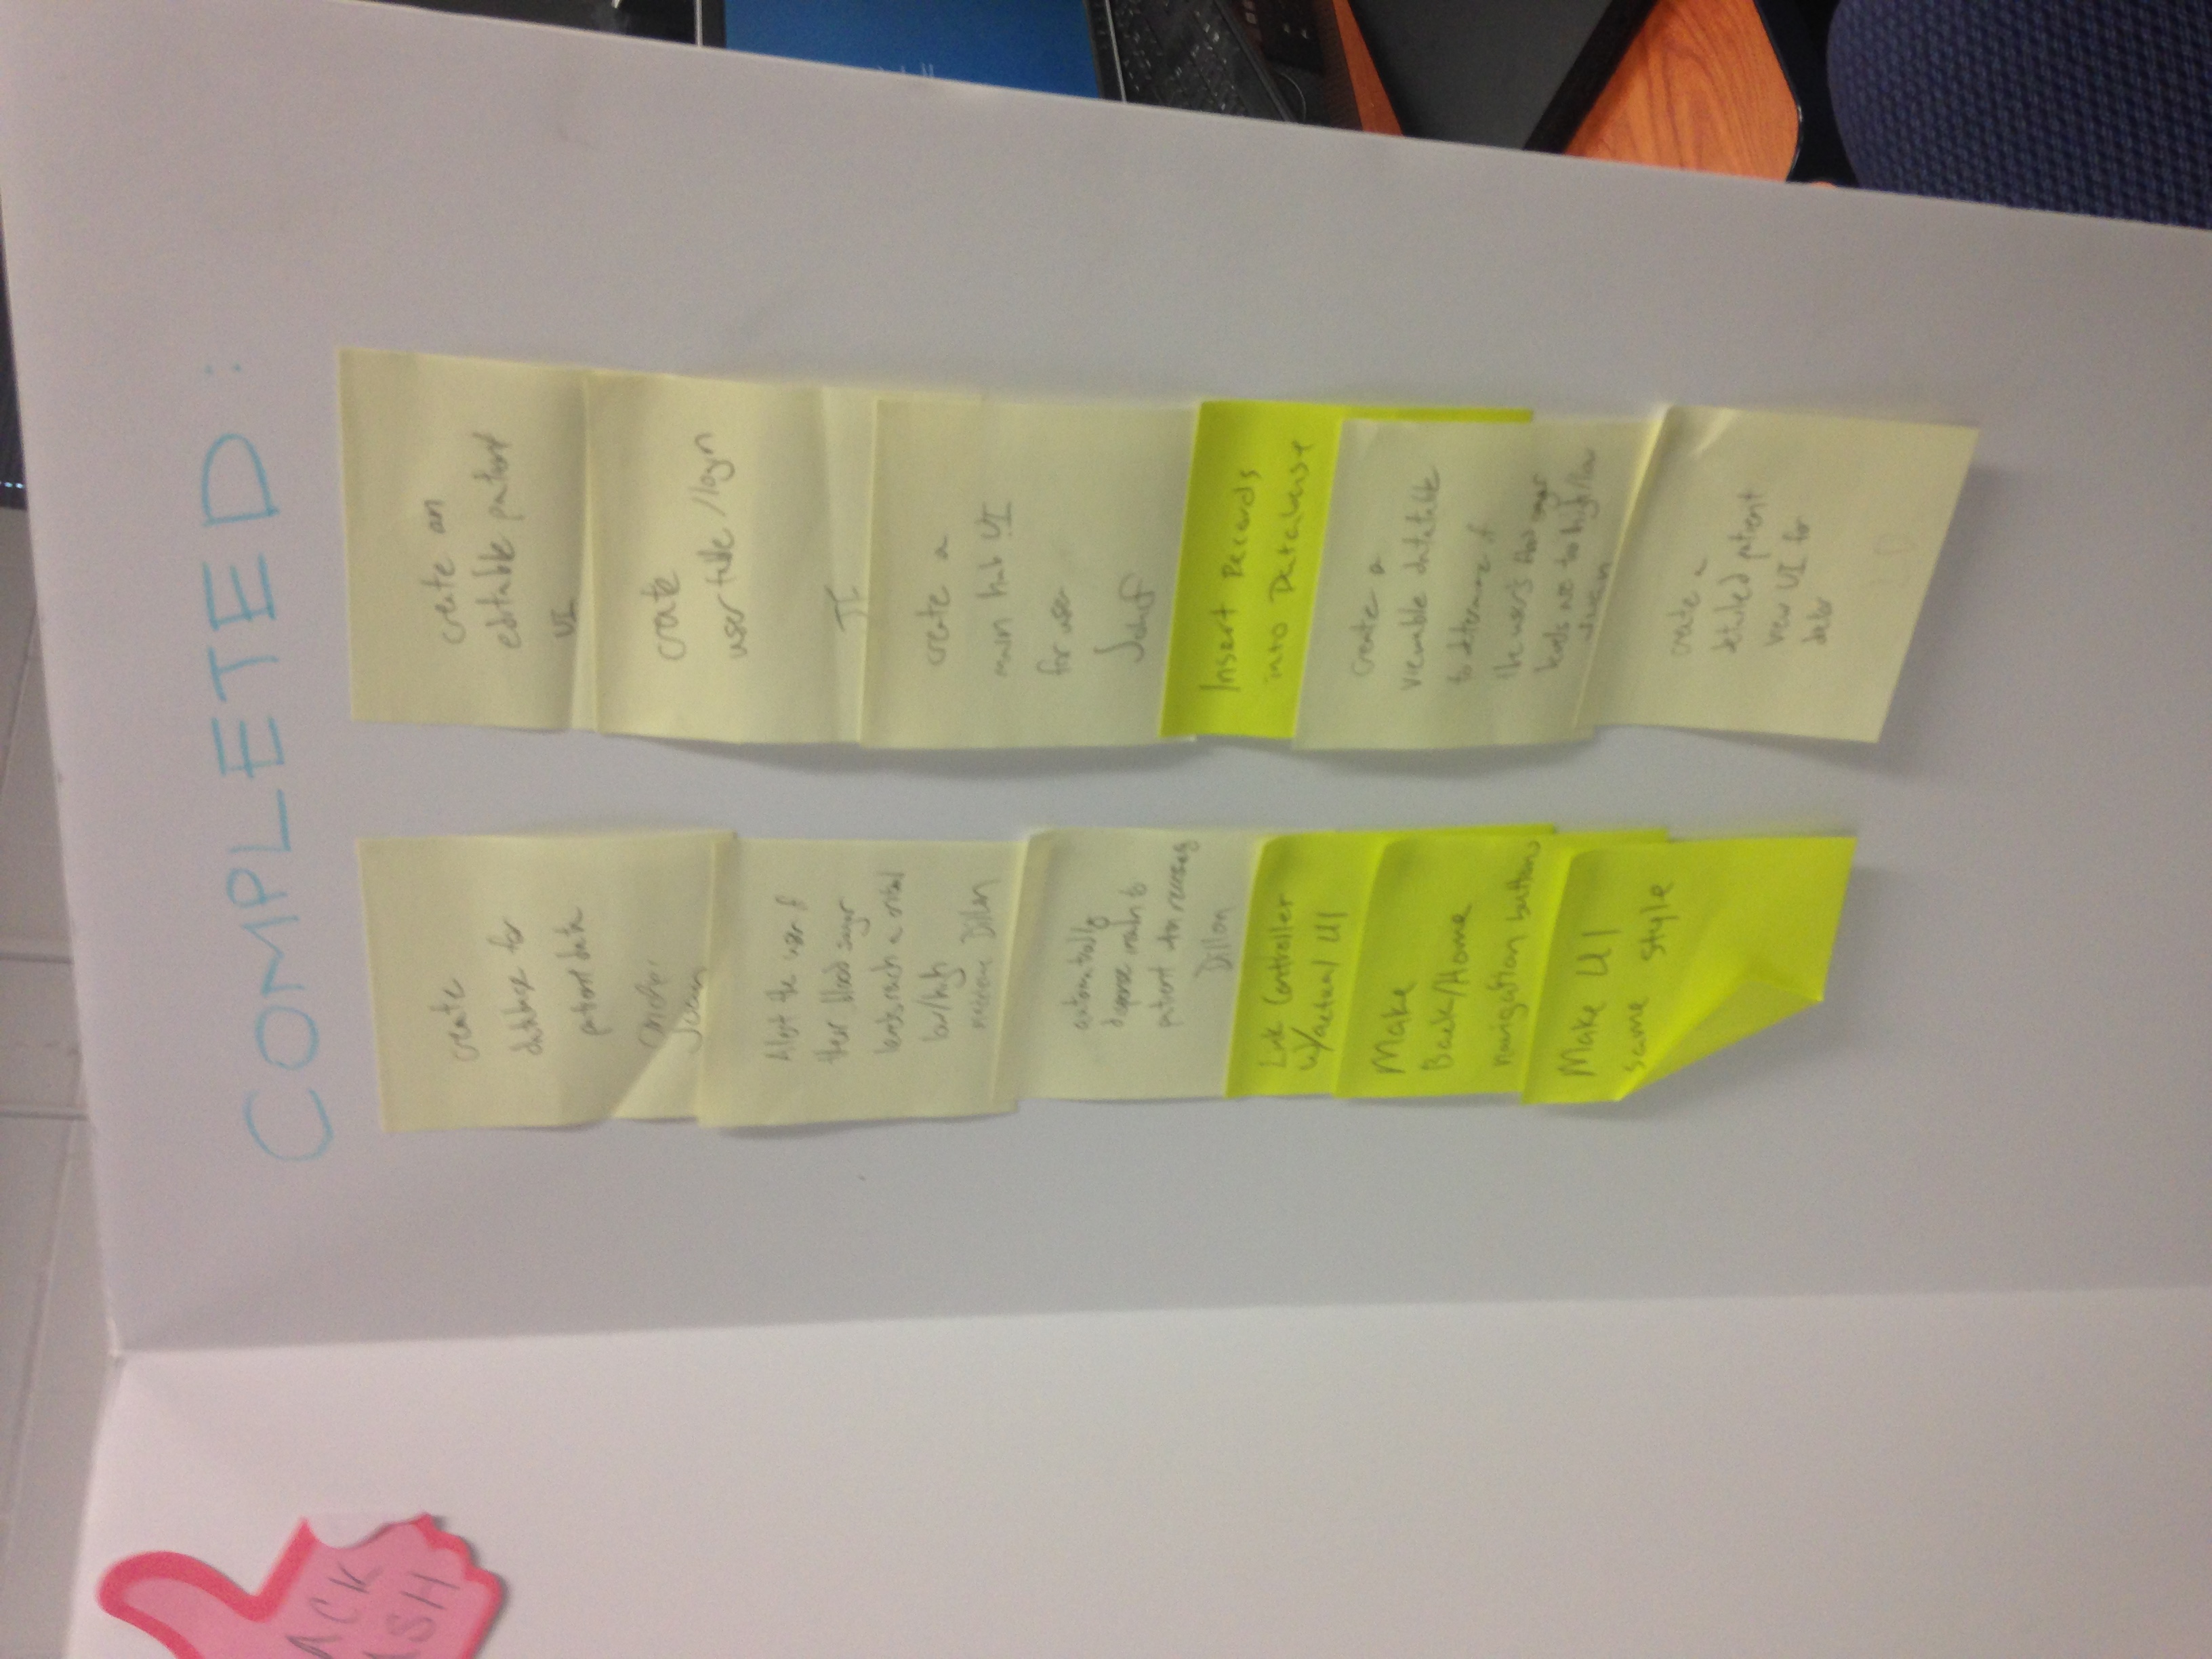 ACK
ASH
COMPLETED:
create
database for
patient data
Juan
Alert the user if
their blood sugar
levels reach a critical
low/high
Dillon
automatically
dispense insulin to
patient when necessary
Dillon
Link Controller
w/actual UI
Make
Back/Home
navigation buttons
Make UI
same style
create an
editable patient
UI
create
user table /login
JF
create a
main hub UI
for user
Insert Records
into Database
create a
viewable datatable
to determine if
the user's blood sugar
levels are too high/low
Juan
create a
detailed patient
view UI for
doctor